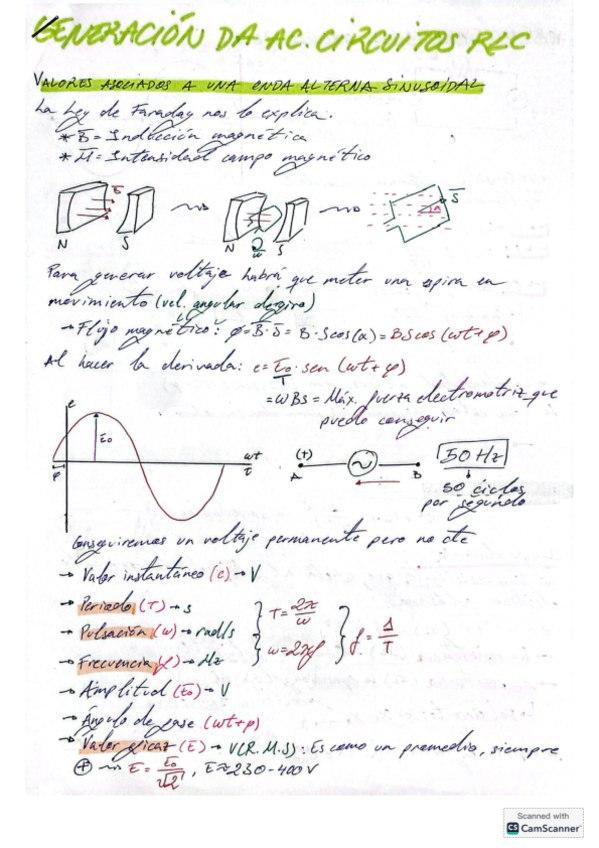 GENERACIÓN DA AC. CIRCUITOS RLC
VALORES ASOCIADOS A UNA ONDA ALTERNA SINUSOIDAL
La Ley de Faraday nos lo explica.
* B̅ = Inducción magnética
* H̅ = Intensidad campo magnético
B̅
S̅
N S
N S
w
Para generar voltaje habrá que meter una espira en
movimiento (vel. angular de giro)
→ Flujo magnético: φ = B̅·S̅ = B·Scos(α) = BScos(wt+φ)
Al hacer la derivada: e = Eo·sen(wt+φ)
= wBS = Máx. fuerza electromotriz que
puedo conseguir
e
Eo
wt
t
φ
(+)
A
B
50 Hz
50 ciclos
por segundo
Conseguiremos un voltaje permanente pero no cte
→ Valor instantáneo (e) → V
→ Periodo (T) → s
T = 2π/w
→ Pulsación (w) → rad/s
w = 2πf
f = 1/T
→ Frecuencia (f) → Hz
→ Amplitud (Eo) → V
→ Ángulo de fase (wt+φ)
→ Valor eficaz (E) → V(R.M.S): Es como un promedio, siempre
⊕ → E = Eo/√2, E≈230-400V
Scanned with
CS CamScanner